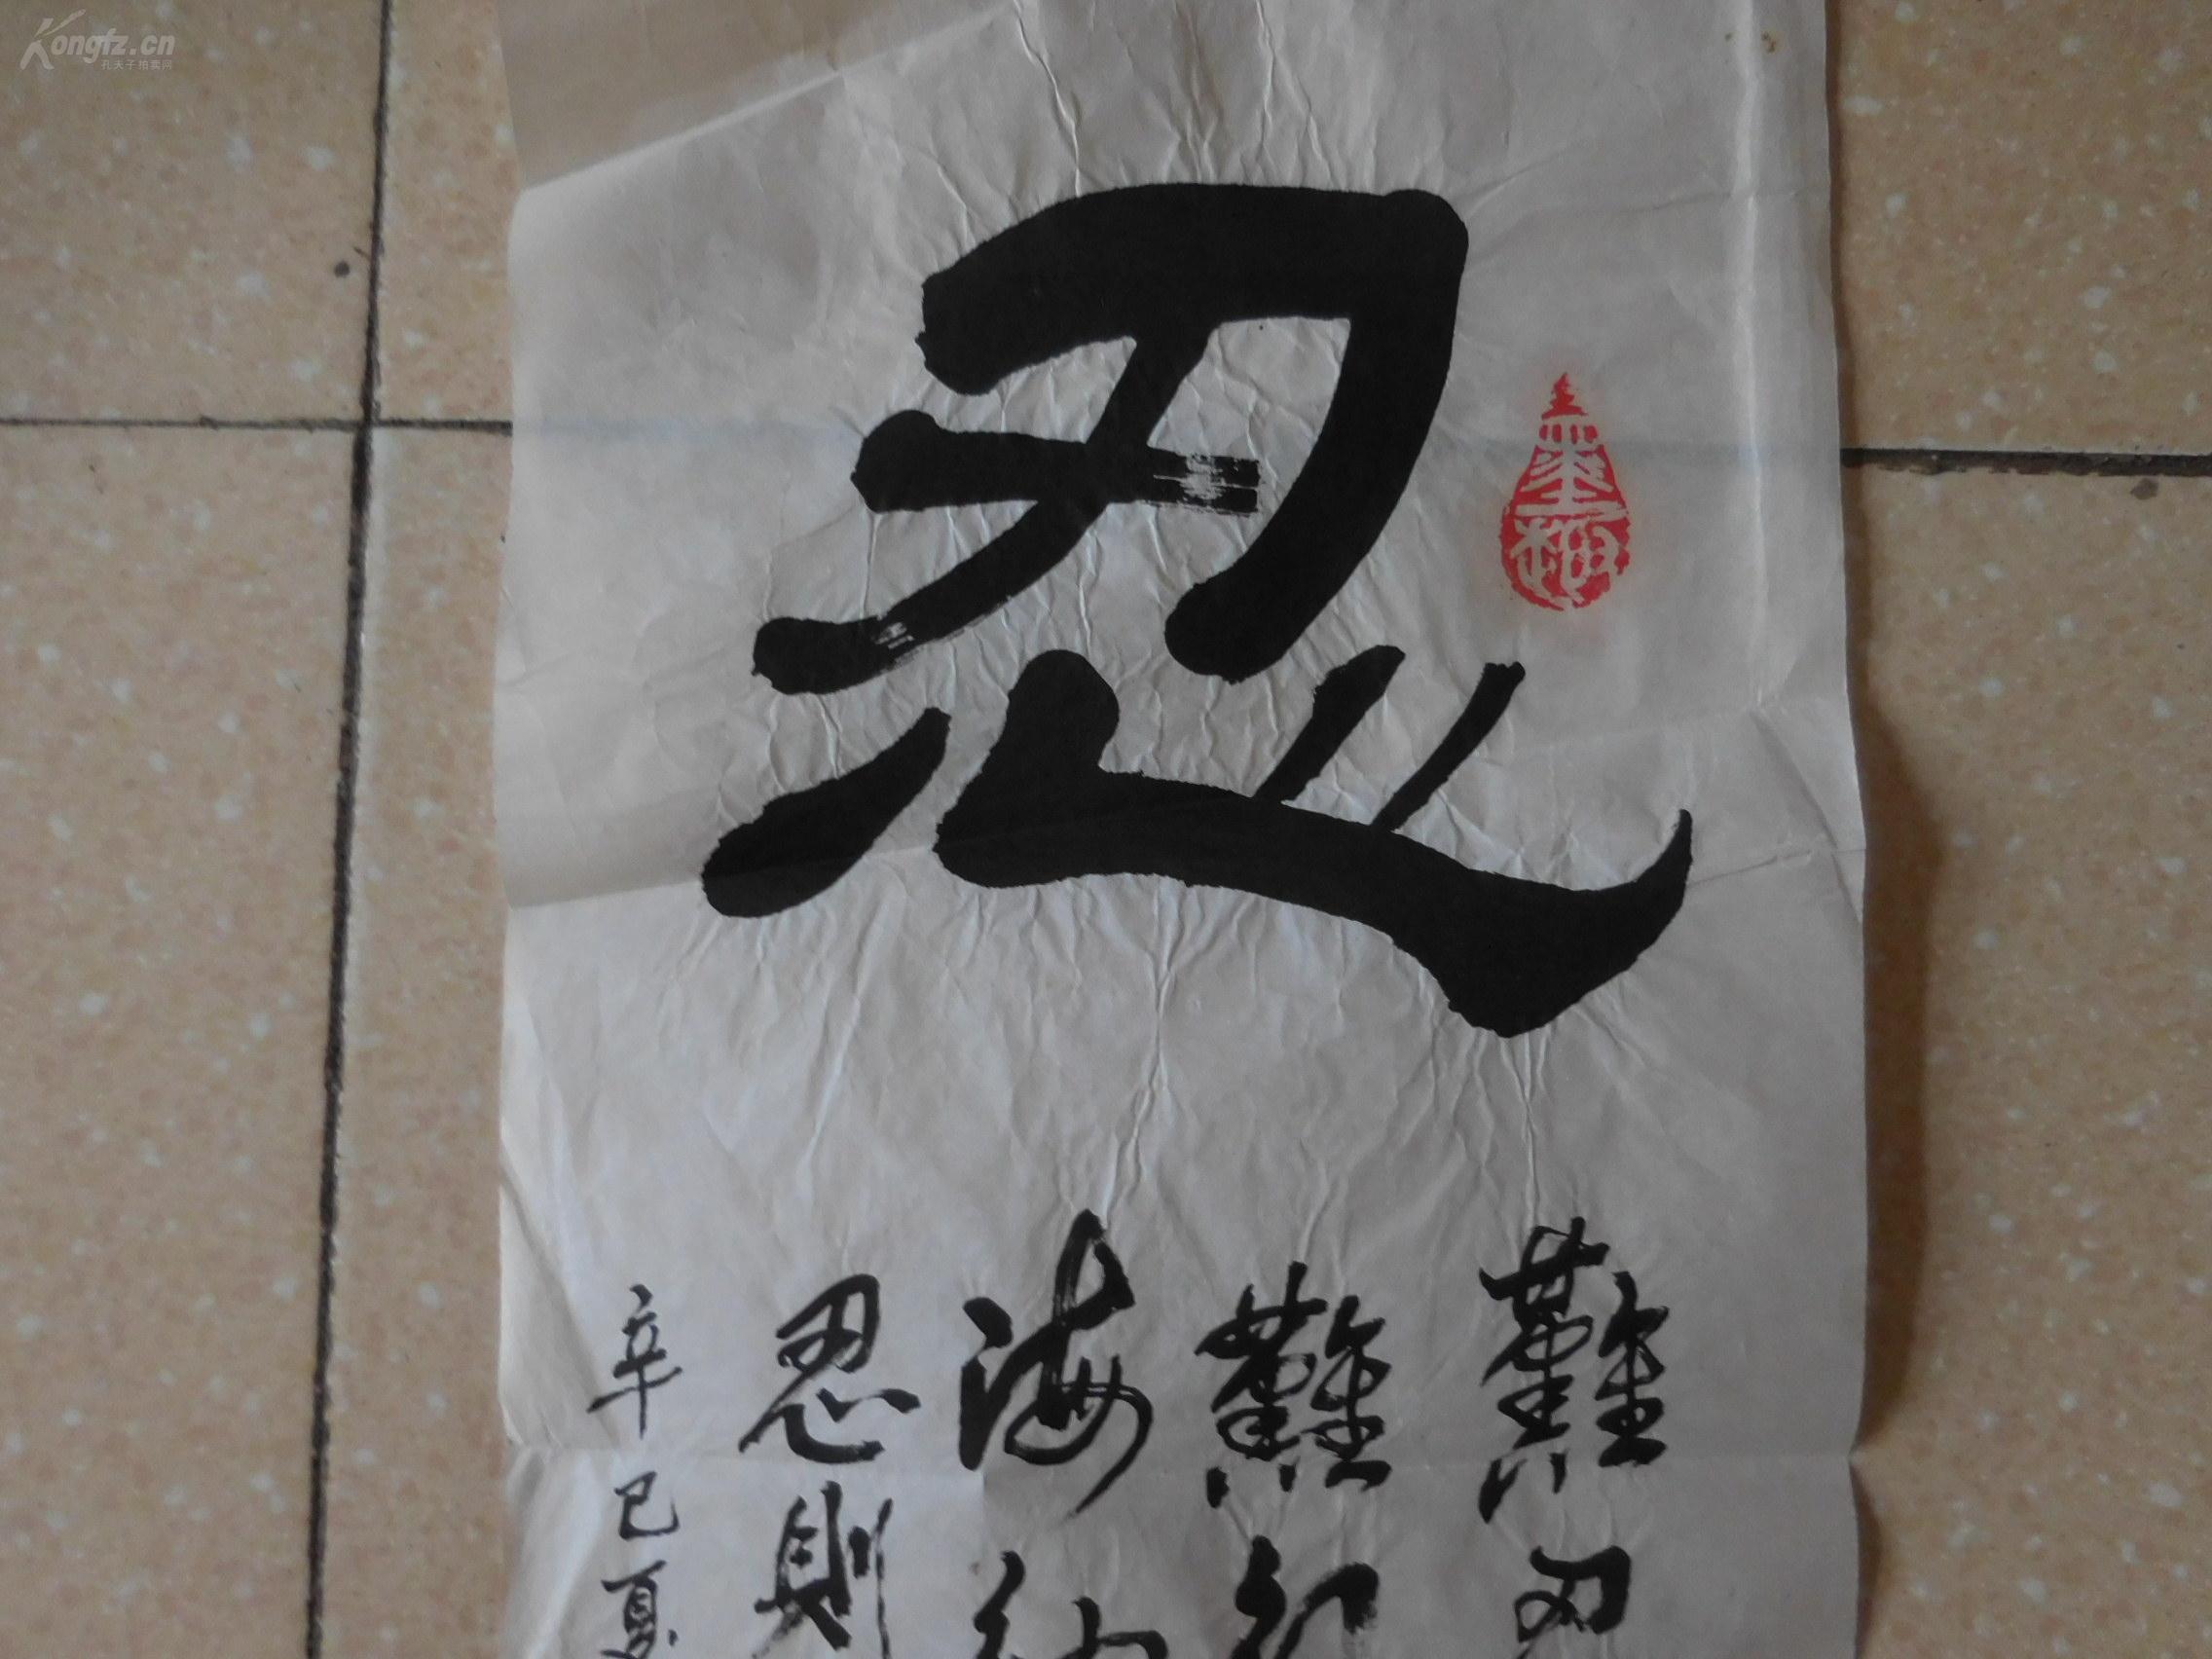 Kongfz.cn
孔夫子拍卖网
忍
墨梅
難忍
難知
海納
忍則
辛巳夏